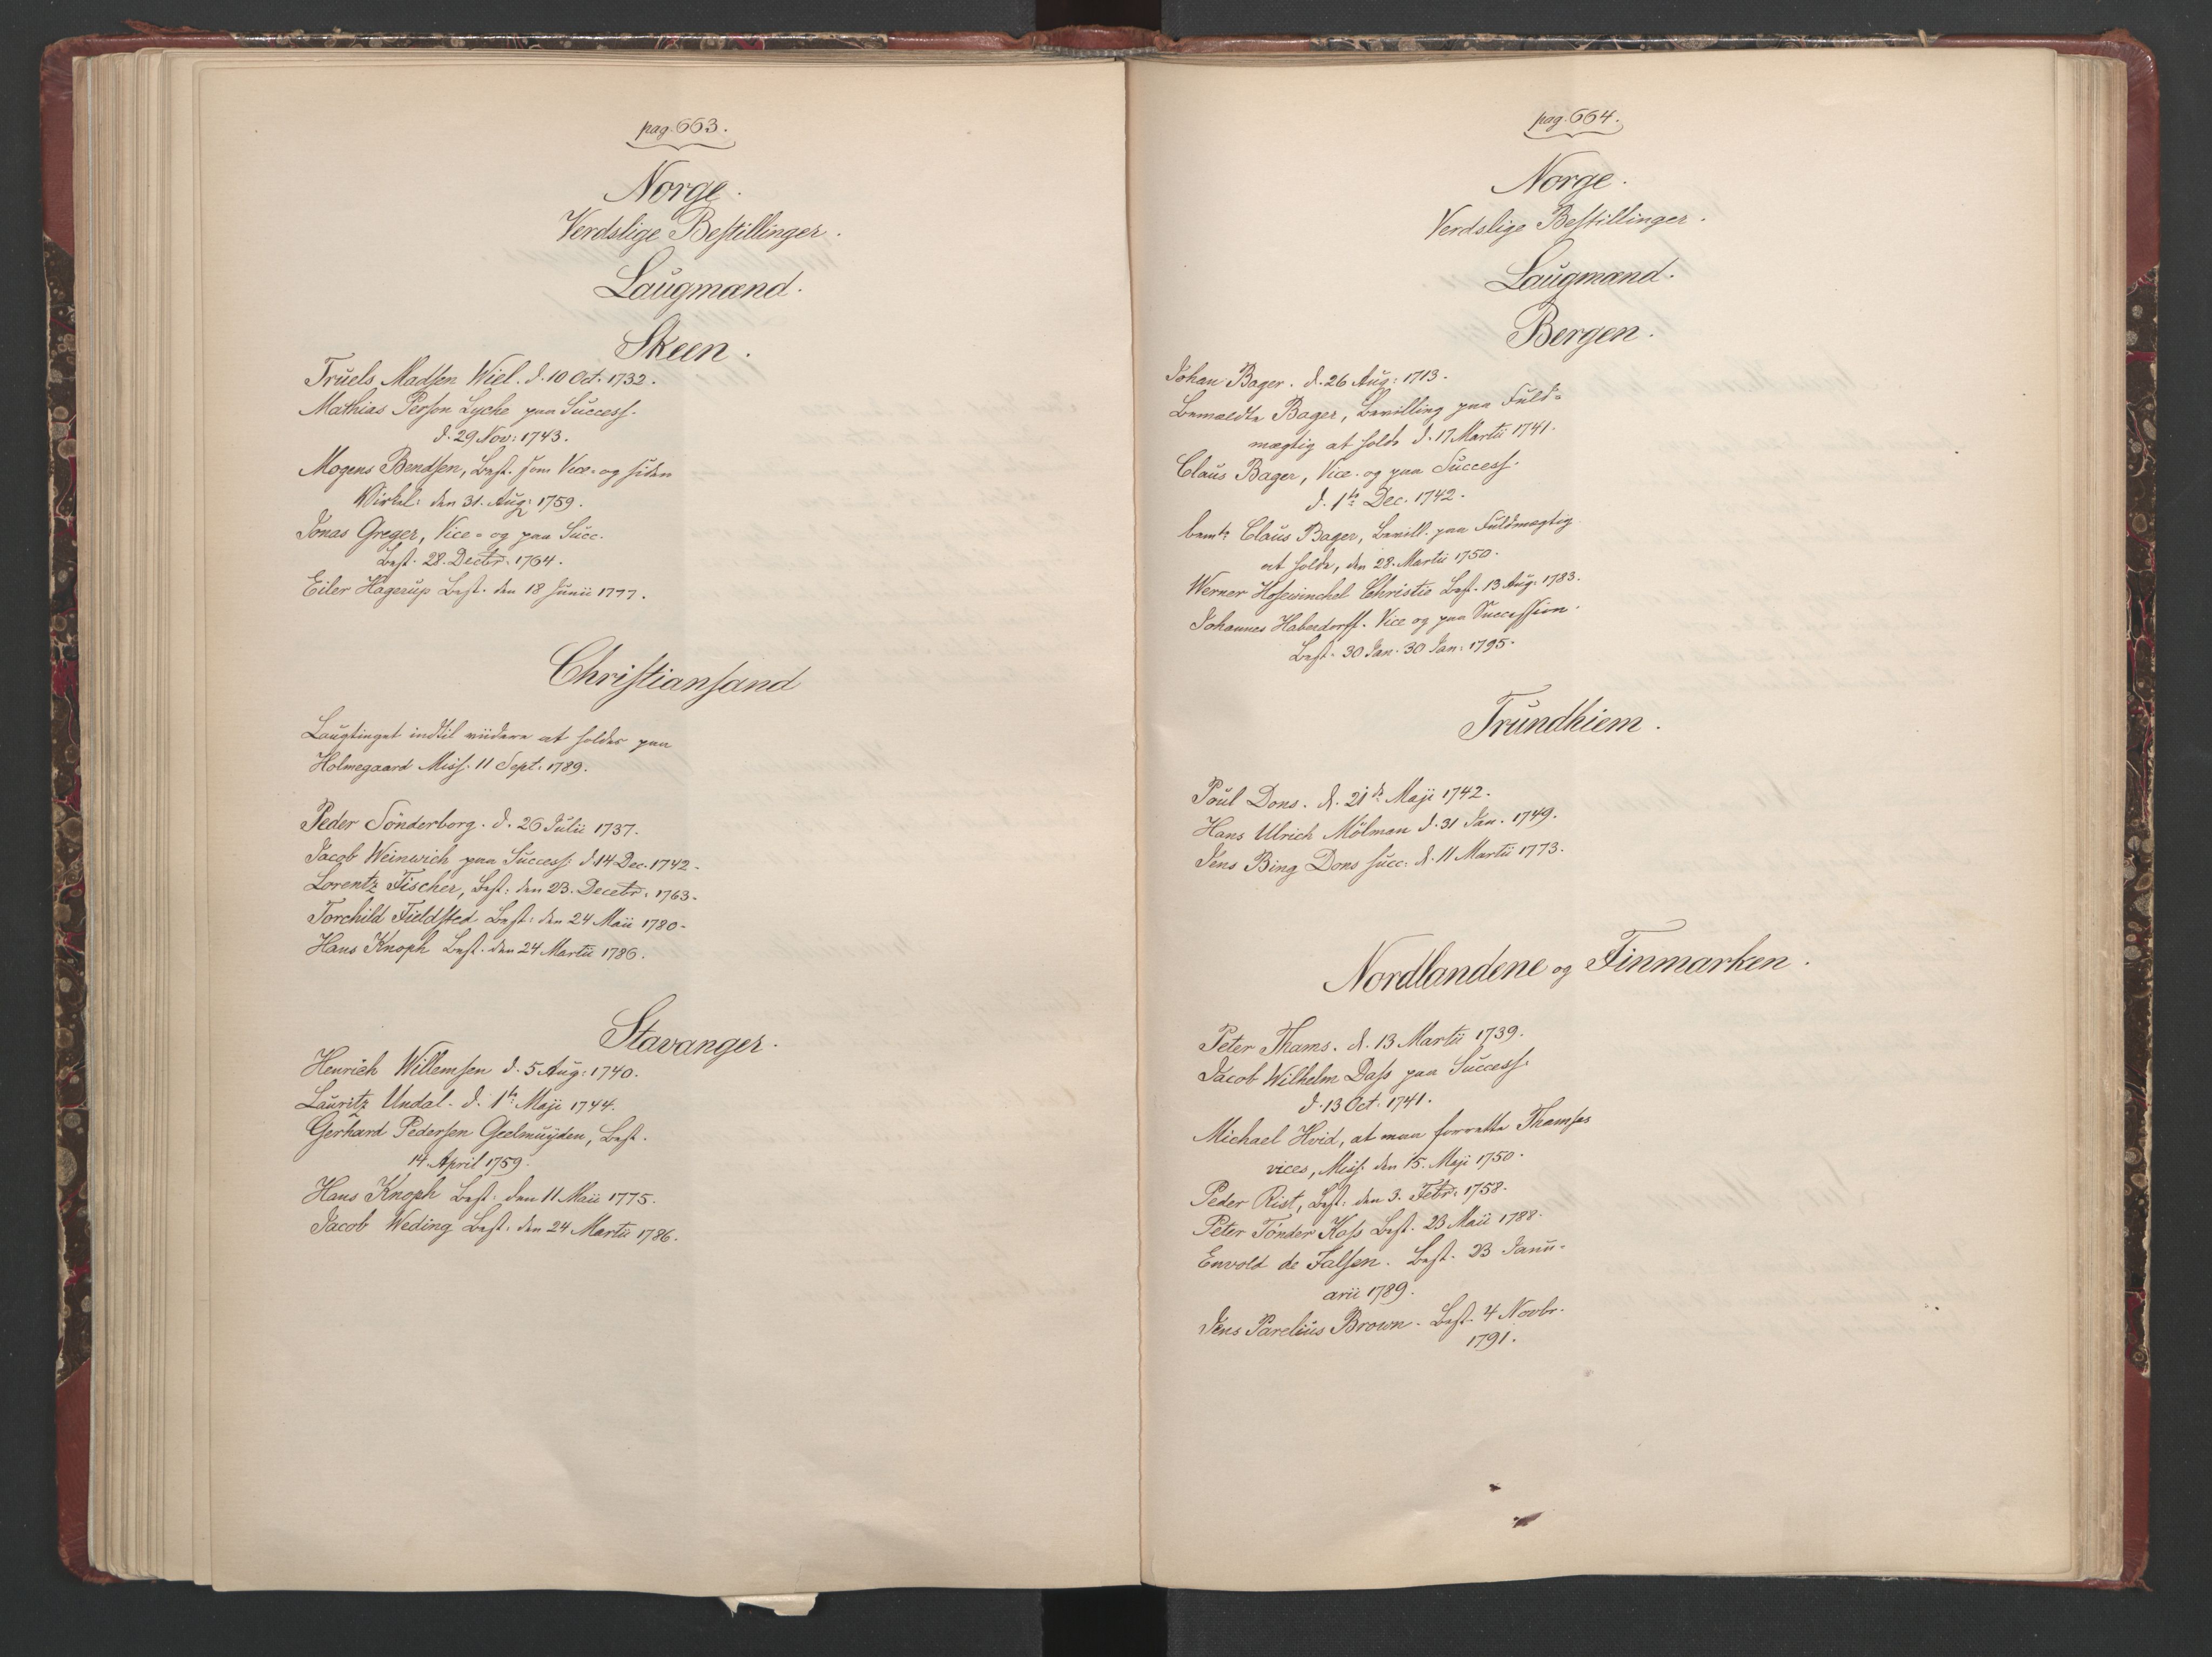 pag. 663.
Norge.
Verdslige Bestillinger.
Laugmænd.
Skeen.
Truels Madsen Wiel. d. 10 Oct. 1732.
Mathias Person Lyche paa Success.
d. 29 Nov: 1743.
Mogens Bendsen, Best. som Vice- og siden
Wirkel: den 31. Aug: 1759.
Jonas Greger, Vice- og paa Succ.
Best. 28. Decbr. 1764.
Eiler Hagerup Best. den 18 Junii 1777.
Christiansand
Laugtinget indtil viidere at holdes paa
Holmegaard Miss. 11 Sept. 1789.
Peder Sönderborg. d. 26 Julii 1737.
Jacob Weinwich paa Success: d. 14 Dec. 1742.
Lorentz Fischer, Best: den 23. Decebr: 1763.
Torchild Fieldsted Best: den 24 Maii 1780.
Hans Knoph Best. den 24 Martii 1786.
Stavanger.
Henrich Willemsen d. 5 Aug: 1740.
Lauritz Undal. d. 1te Maji 1744.
Gerhard Pedersen Geelmuÿden, Best.
14 April 1759.
Hans Knoph Best: den 11 Maii 1775.
Jacob Weding Best: den 24 Martii 1786.
pag. 664.
Norge.
Verdslige Bestillinger.
Laugmænd.
Bergen.
Johan Bager. d. 26 Aug: 1713.
Bemældte Bager, Bevilling paa Fuld-
mægtig at holde d. 17 Martii 1741.
Claus Bager, Vice- og paa Success.
d. 1te Dec. 1742.
bemte Claus Bager, Bevill. paa Fuldmægtig
at holde, den 28. Martii 1750.
Werner Hosewinchel Christie Best. 13 Aug: 1783.
Johannes Haberdorff. Vice og paa Succession.
Best. 30 Jan. 30 Jan: 1795.
Trundhiem.
Poul Dons. d. 21de Maji 1742.
Hans Ulrich Mölman d. 31 Jan. 1749.
Jens Bing Dons succ: d. 11 Martii 1773.
Nordlandene og Finmarken.
Peter Thams. d. 13 Martii 1739.
Jacob Wilhelm Dass paa Success.
d. 13 Oct. 1741.
Michael Hvid, at maa forrette Thamses
vices, Miss. den 15. Maji 1750.
Peder Rist, Best: den 3. Febr: 1758.
Peter Tönder Kass Best. 23 Maii 1788.
Envold de Falsen. Best. 23 Janu-
arii 1789.
Jens Parelius Brown. Best. 4 Novbr.
1791.